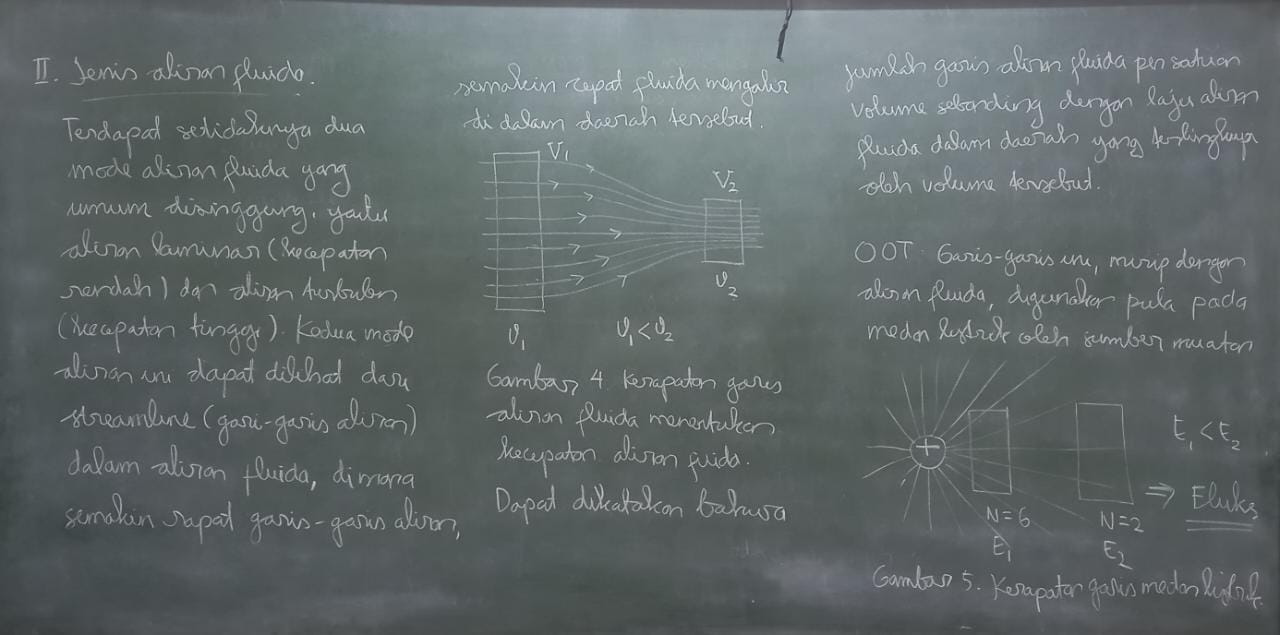 II. Jenis aliran fluida.
Terdapat setidaknya dua
mode aliran fluida yang
umum disinggung, yaitu
aliran laminar (kecepatan
rendah) dan aliran turbulen
(kecepatan tinggi). Kedua mode
aliran ini dapat dilihat dari
streamline (gari-garis aliran)
dalam aliran fluida, dimana
semakin rapat garis-garis aliran,
semakin cepat fluida mengalir
di dalam daerah tersebut.
V₁
V₂
v₂
v₁ v₁ < v₂
Gambar 4. Kerapatan garis
aliran fluida menentukan
kecepatan aliran fuida.
Dapat dikatakan bahwa
jumlah garis aliran fluida per satuan
volume sebanding dengan laju aliran
fluida dalam daerah yang terlingkupa
oleh volume tersebut.
OOT. Garis-garis ini, mirip dengan
aliran fluida, digunakan pula pada
medan listrik oleh sumber muatan
+
E₁ < E₂
⇒ Fluks
N=6 N=2
E₁ E₂
Gambar 5. Kerapatan garis medan listrik.